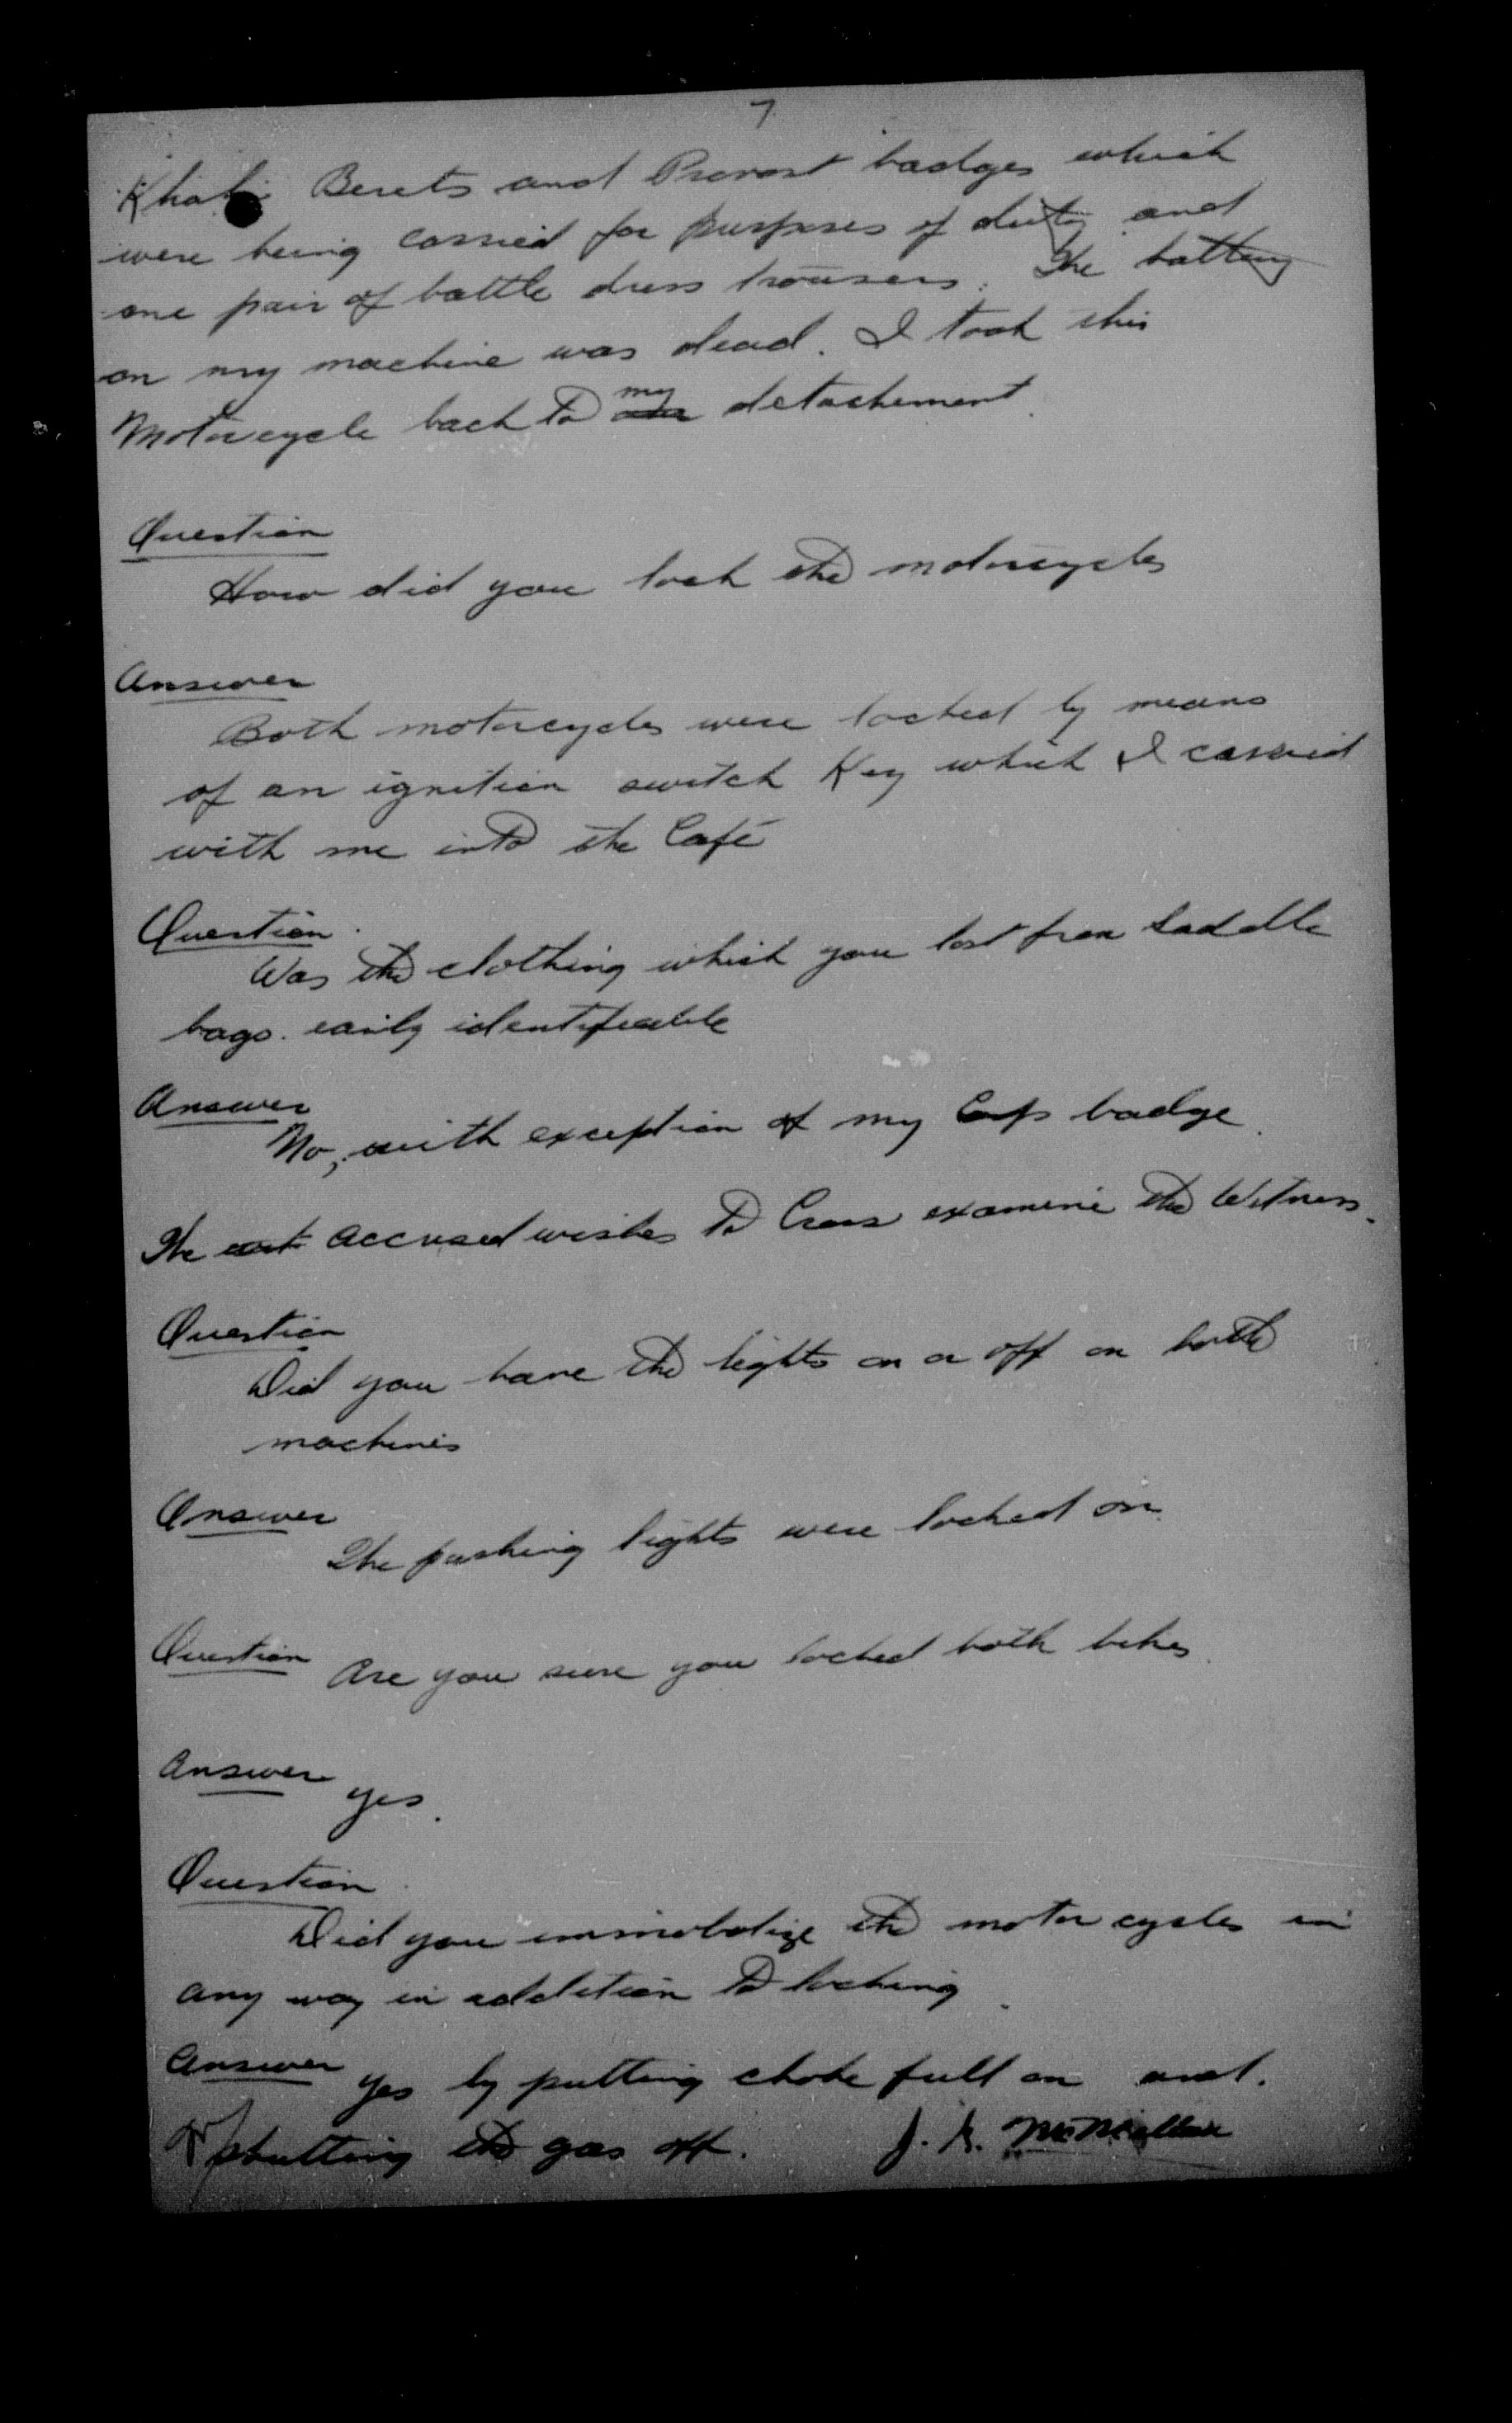 7
Khaki Berets and Provost badges which
were being carried for purposes of duty and
one pair of battle dress trousers. The battery
on my machine was dead. I took this
Motorcycle back to my detachement.
Question
How did you lock the motorcycles
Answer
Both motorcycles were locked by means
of an ignition switch Key which I carried
with me into the Café
Question.
Was the clothing which you lost from Saddle
bags. easily identifiable
Answer
No, with exception of my Cap badge.
The accused wishes to Cross examine the Witness.
Question
Did you have the lights on or off on both
machines
Answer
The parking lights were locked on.
Question Are you sure you locked both bikes.
Answer yes.
Question.
Did you immobolize the motor cycles in
any way in addition to locking.
Answer yes by putting choke full on and.
shutting the gas off. J. G. McMillan